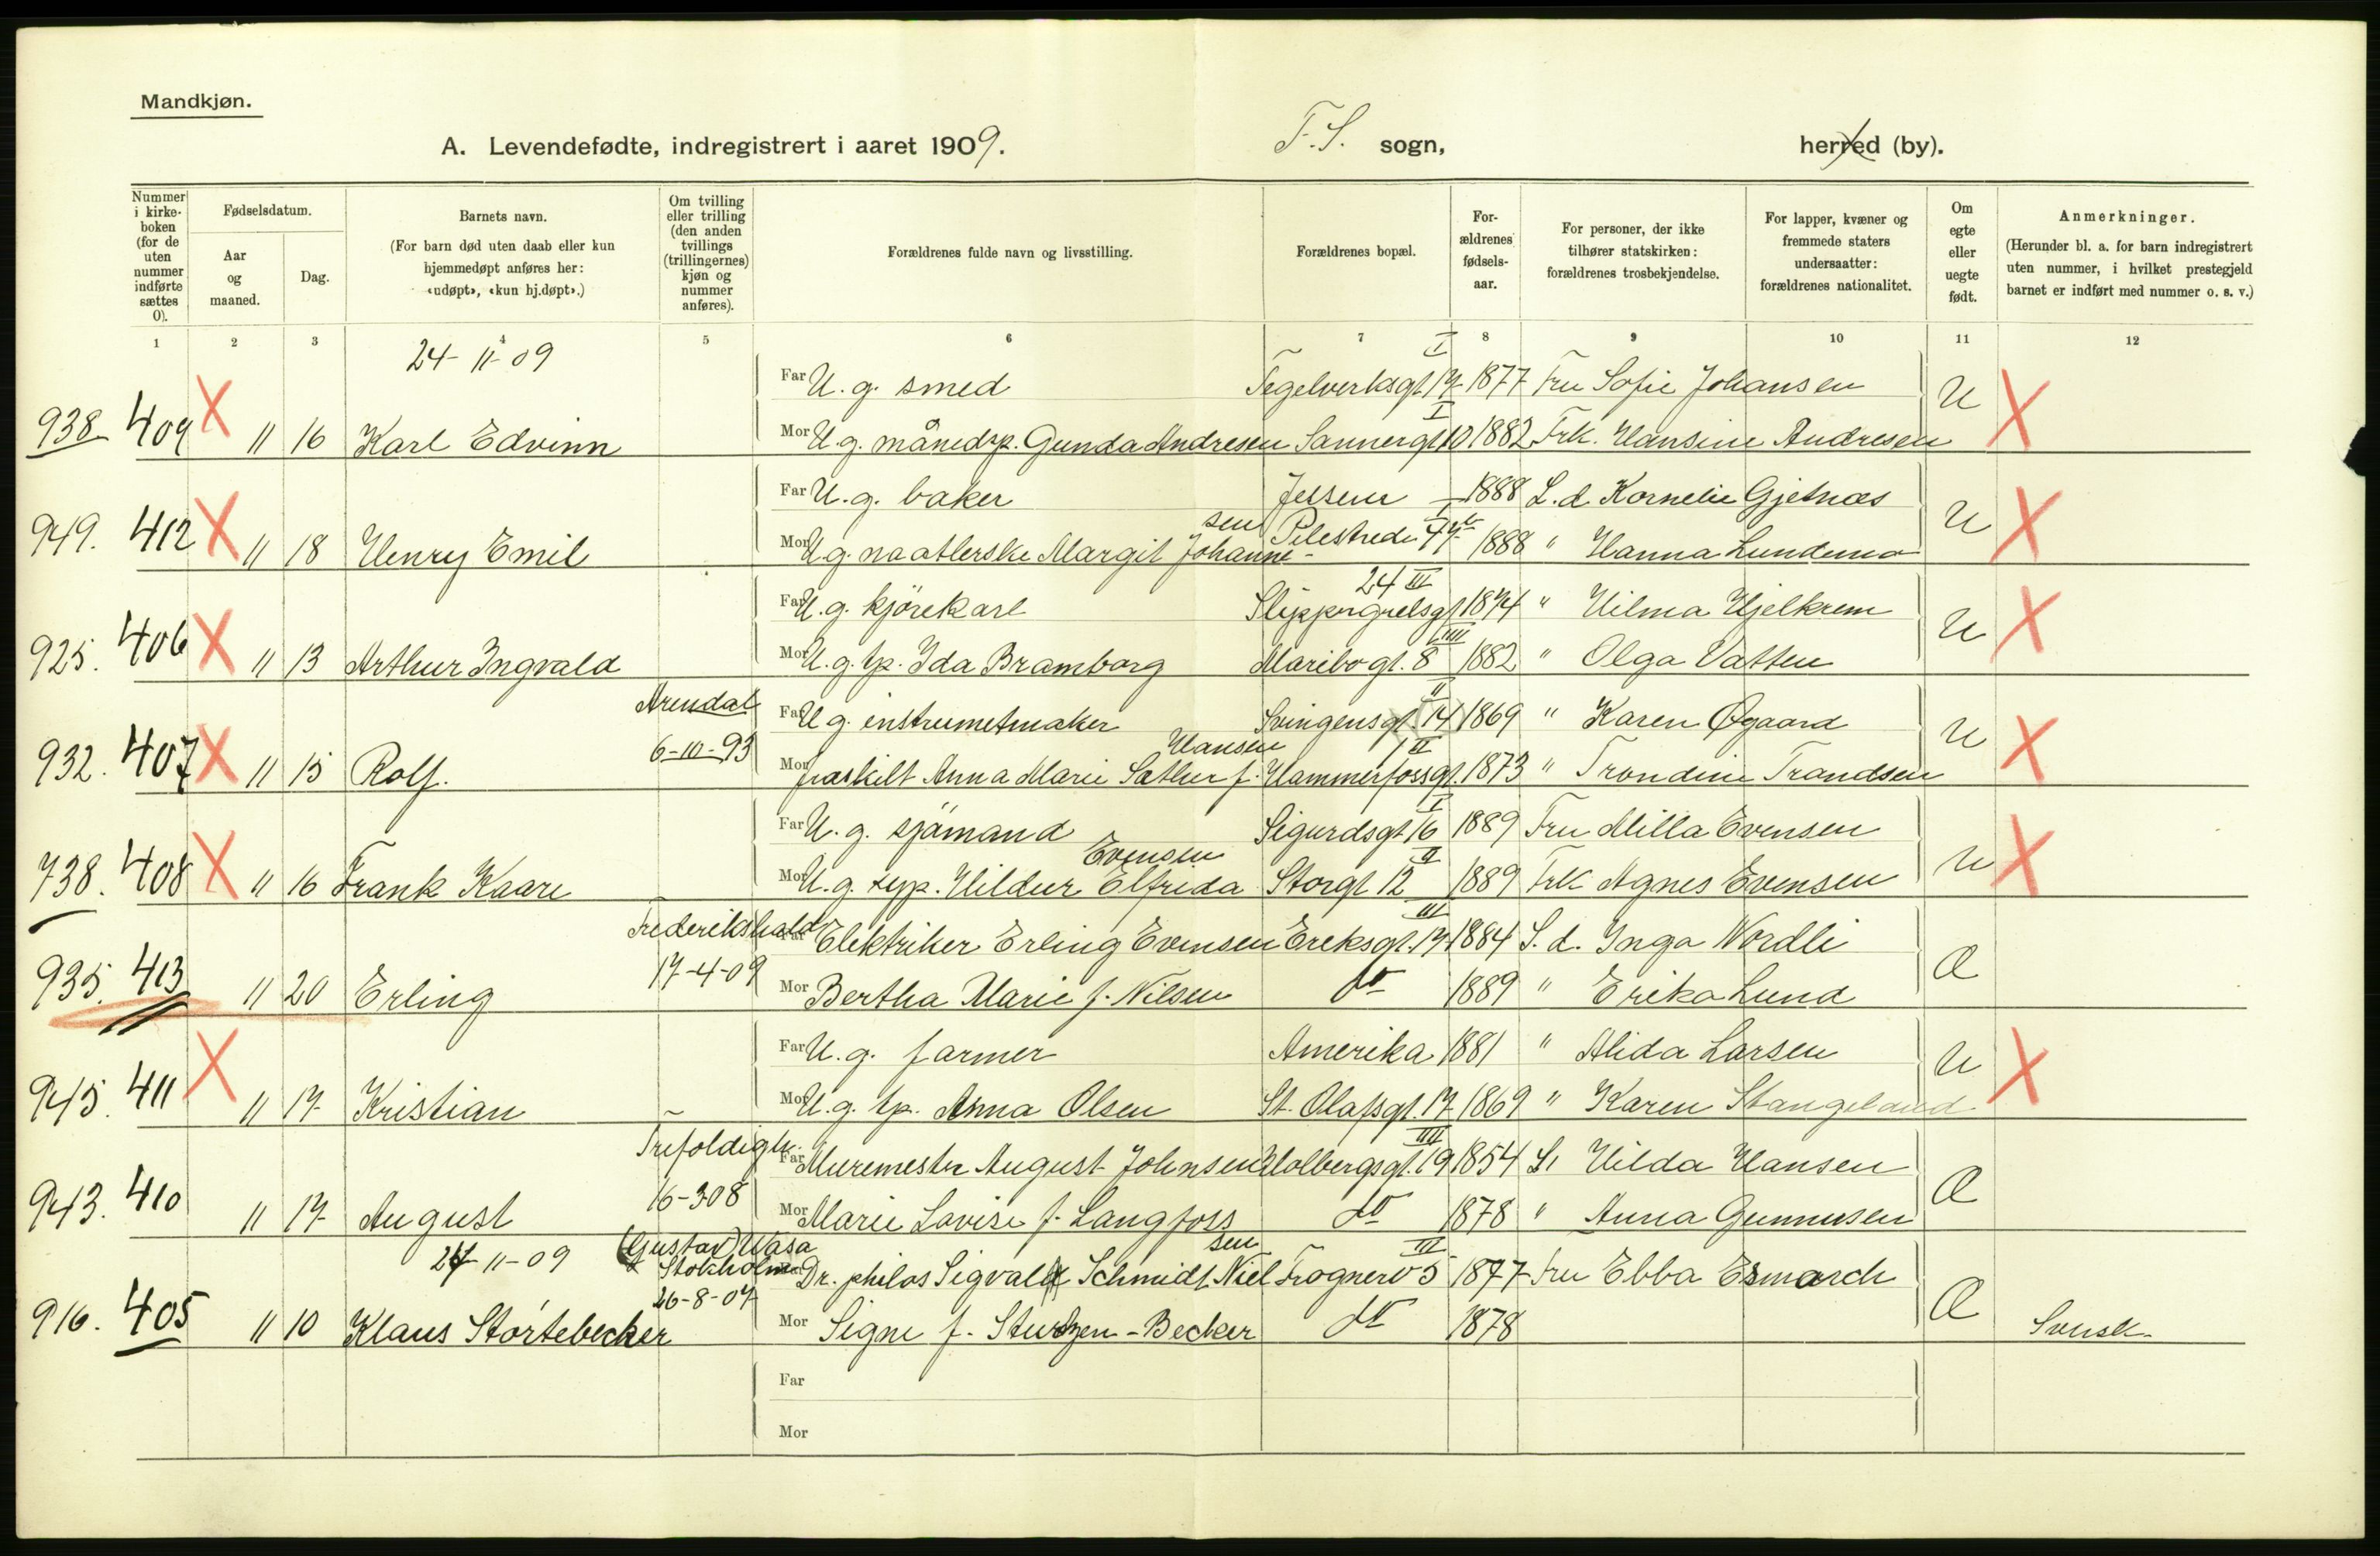 Mandkjøn.
A. Levendefødte, indregistrert i aaret 1909.
F.S. sogn,
herred (by).
Nummer i kirke-boken (for de uten nummer indførte sættes 0).
Fødselsdatum.
Aar og maaned.
Dag.
Barnets navn.
(For barn død uten daab eller kun hjemmedøpt anføres her: «udøpt», «kun hj.døpt».)
Om tvilling eller trilling (den anden tvillings (trillingernes) kjøn og nummer anføres).
Forældrenes fulde navn og livsstilling.
Forældrenes bopæl.
For-ældrenes fødsels-aar.
For personer, der ikke tilhører statskirken: forældrenes trosbekjendelse.
For lapper, kvæner og fremmede staters undersaatter: forældrenes nationalitet.
Om egte eller uegte født.
Anmerkninger.
(Herunder bl. a. for barn indregistrert uten nummer, i hvilket prestegjeld barnet er indført med nummer o. s. v.)
1 2 3 4 5 6 7 8 9 10 11 12
24-11-09
Far U. g. smed Tegelverksgt 17 I 1877 Fru Sofie Johansen
938 409 X " 16 Karl Edvinn U X
Mor U. g. månedsp. Gunda Andresen Sannergt 10 I 1882 Frk. Hansine Andresen
Far U. g. baker Jessen 1888 L. d. Kornelie Gjetnæs
949. 412 X " 18 Henry Emil U X
Mor U. g. naatlerske Margit Johannesen Pilestrede 1888 " Hanna Lundemo
Far U. g. kjörekarl 24 III 1874 " Hilma Hjelkrem
925. 406 X " 13 Arthur Ingvald U X
Mor U. g. tp. Ida Bramborg Maribogt. 8 IIII 1882 " Olga Vatten
Arendal
Far U. g. instrumetmaker Svingensgt 14 II 1869 " Karen Øgaard
932. 407 X " 15 Rolf. 6-10-93 U X
Mor fraskilt Anna Marie Sæther f. Hansen Hammerfossgt. 1 II 1873 " Trondine Trandsen
Far U. g. sjömand Sigurdsgt 16 I 1889 Fru Milla Evensen
738. 408 X " 16 Frank Kaare U X
Mor U. g. syp. Hildur Elfrida Evensen Storgt 12 II 1889 Frk Agnes Evensen
Frederikshald
Far Elektriker Erling Evensen Ereksgt. 17 III 1884 L. d. Inga Nordli
935. 413 " 20 Erling 17-4-09 Æ
Mor Bertha Marie f. Nilsen do 1889 " Erika Lund
Far U. g. farmer Amerika 1881 " Alida Larsen
945. 411 X " 17 Kristian U X
Mor U. g. tp. Anna Olsen St. Olafsgt. 17 1869 " Karen Stangeland
Trefoldigh.
Far Muremester August Johnsen Holbergsgt. 19 IIII 1854 Hilda Hansen
943. 410 " 17 August 16-3-08 Æ
Mor Marie Lovise f. Langfoss do 1878 " Anna Gunnusen
24-11-09 (Gustav Wasa Stokholm
Far Dr. philos Sigvald Schmidt Nielsen Frognerv 5 III 1877 Fru Ebba Esmarch
916. 405 " 10 Klaus Störtebecker 26-8-07 Æ Svensk
Mor Signe f. Sturzen-Becker do 1878
Far
Mor